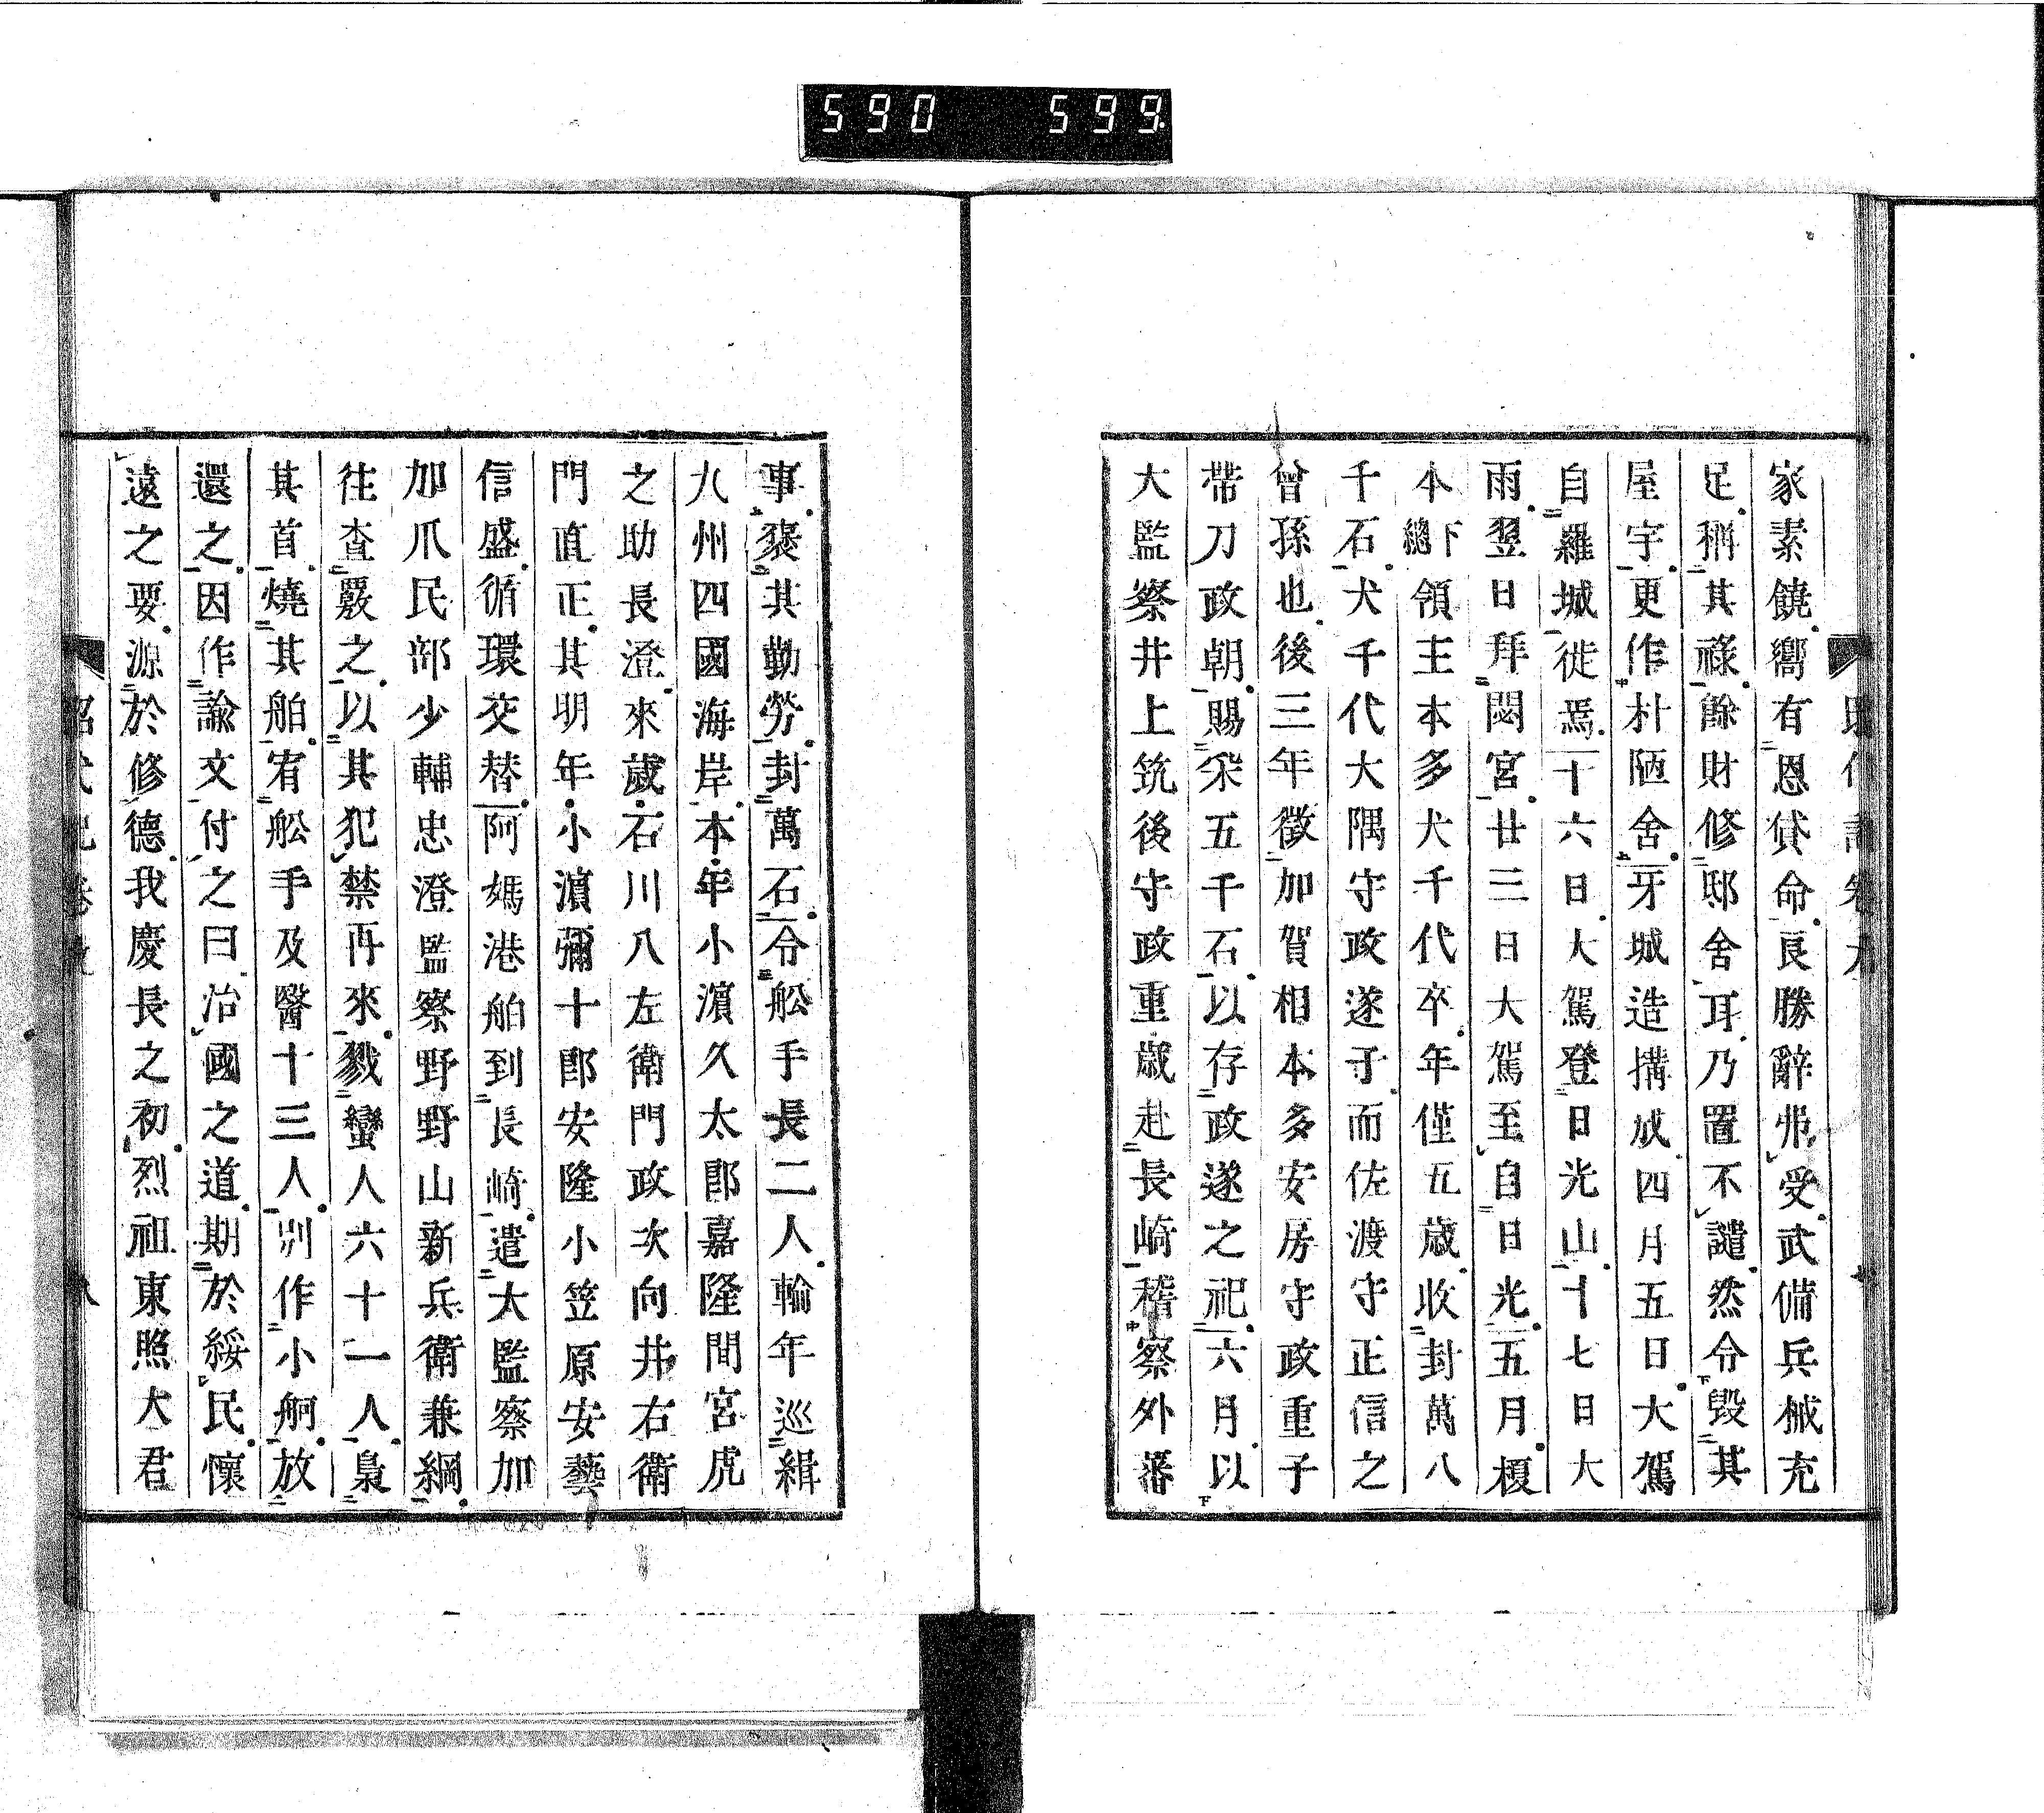 590 599
家素饒嚮有恩貸命良勝辭弗受武備兵械充
足稱其祿餘財修邸舍耳乃置不譴然令毀其
屋宇更作朴陋舍牙城造搆成四月五日大駕
自羅城徙焉十六日大駕登日光山十七日大
雨翌日拜閟宮廿三日大駕至自日光五月榎
本下總領主本多犬千代卒年僅五歲收封萬八
千石犬千代大隅守政遂子而佐渡守正信之
曾孫也後三年徵加賀相本多安房守政重子
帶刀政朝賜采五千石以存政遂之祀六月以
大監察井上筑後守政重歲赴長崎稽察外蕃
事褒其勤勞封萬石令舩手長二人輪年巡緝
九州四國海岸本年小濵久太郎嘉隆間宮虎
之助長澄來歲石川八左衛門政次向井右衛
門直正其明年小濵彌十郎安隆小笠原安藝
信盛循環交替阿媽港舶到長崎遣大監察加
加爪民部少輔忠澄監察野野山新兵衛兼綱
往查覈之以其犯禁再來戮蠻人六十一人梟
其首燒其舶宥舩手及醫十三人別作小舸放
還之因作諭文付之曰治國之道期於綏民懷
遠之要源於修德我慶長之初烈祖東照大君